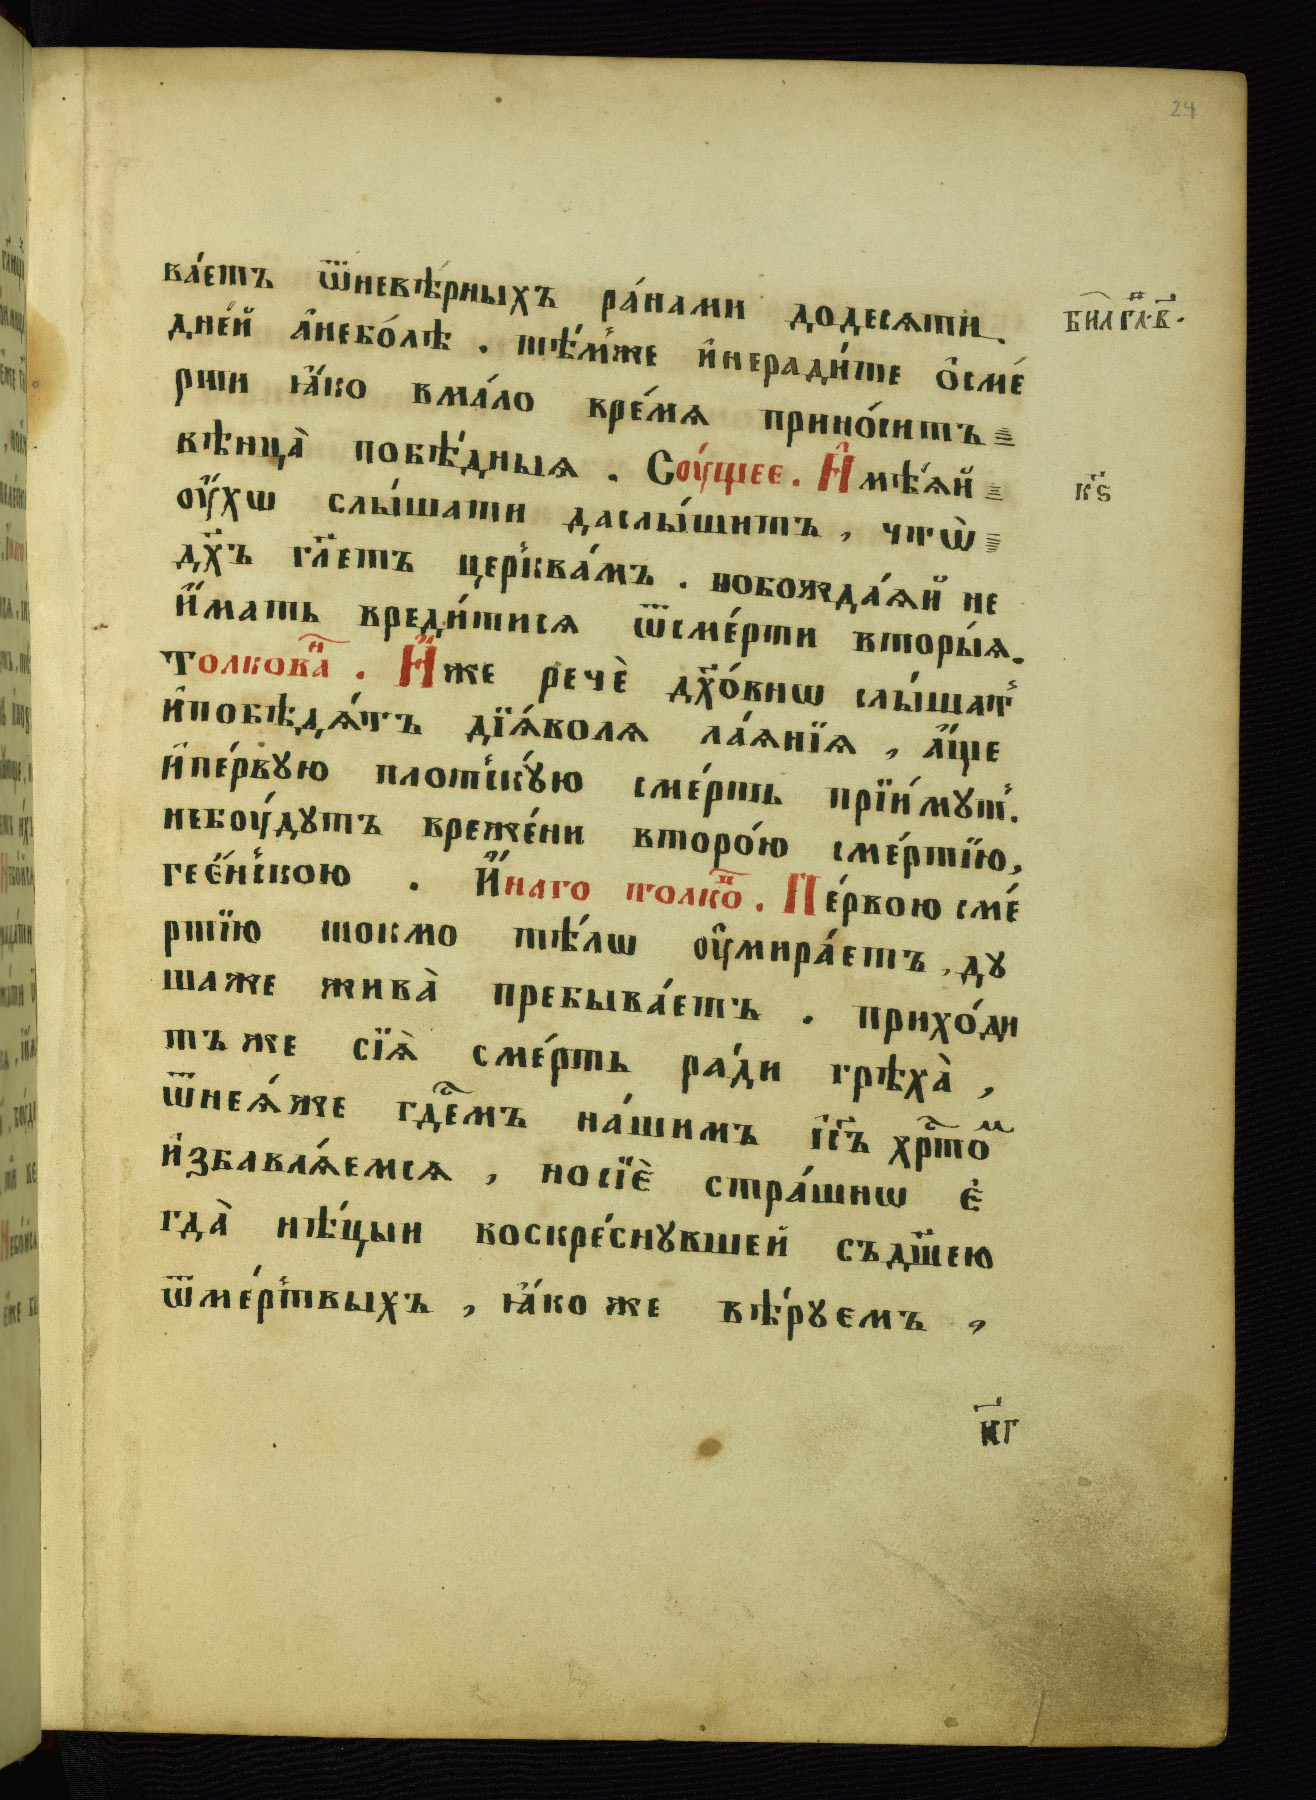 24
ва́етъ ѿневѣ́рныхъ ра́нами додесѧти
дне́й а҆небо́лѣ . тѣ́мже и҆неради́те ѡ҆сме́
рти ꙗ҆́ко вма́ло вре́мѧ прино́ситъ
вѣнца̀ побѣ́дныѧ . Соу́щее . И҆мѣ́ѧй
оу҆́хѡ слы́шати даслы́шитъ , чтѡ̀
дх҃ъ гл҃етъ церквáмъ . побождáѧй не
и҆́мать вреди́тисѧ ѿсме́рти вторы́ѧ .
Толкова́н . И҆́же речѐ дх҃о́внѡ слы́шат
и҆побѣдѧ́тъ дїѧ́волѧ ла́ѧнїѧ , а҆́ще
и҆пе́рвꙋю плотскꙋ́ю сме́рть прїи́мꙋт .
небоу́дꙋтъ вреже́ни второ́ю сме́ртїю ,
гее́нскою . И҆́наго толко́п . Пе́рвою сме́
ртїю токмо тѣ́лѡ оу҆мира́етъ , дꙋ
шаже жива̀ пребыва́етъ . прихо́ди
тъ же сїѧ̀ сме́рть ра́ди грѣха̀ ,
ѿнеѧ́же гдⷭ҇емъ на́шимъ і҆с҃ъ хрⷭ҇томъ
и҆збавлѧ́емсѧ , носїѐ стра́шнѡ є҆
гда̀ нѣ́цыи воскре́снꙋвшей съдш҃ею
ѿме́ртвыхъ , ꙗ҆́коже вѣ́рꙋемъ ,
Бил гл҃ в҃ .
к҃ѕ
и҆г